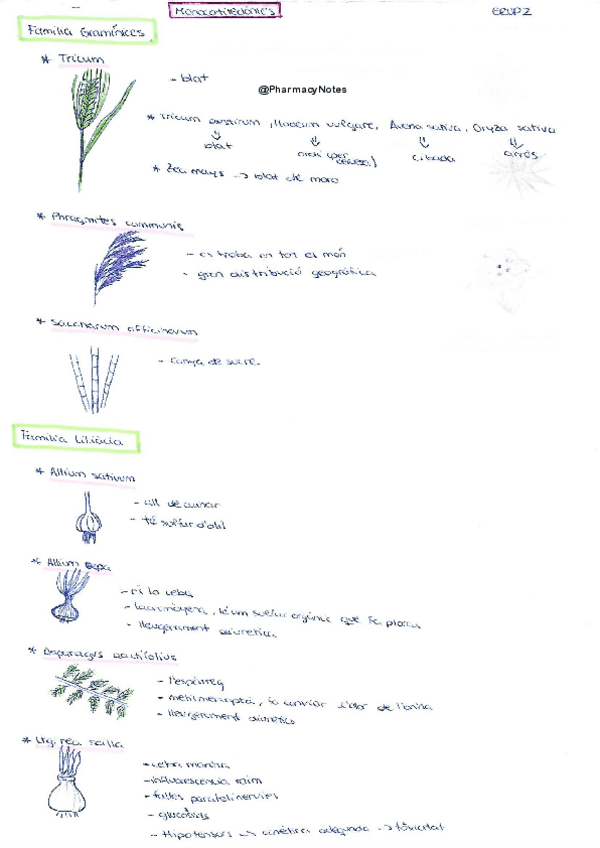 Monocotiledònies
GRUP 2
Família Gramínies
* Tricum
- blat
@PharmacyNotes
* Tricum aestivum, Hordeum vulgare, Avena sativa, Oryza sativa
blat ordi (per cervesa) civada arròs
* Zea mays -> blat de moro
* Phragmites communis
- es troba en tot el món
- gran distribució geogràfica
* Saccharum officinarum
- canya de sucre.
Família Liliàcia
* Allium sativum
- all de cuinar
- té sulfur d'alil
* Allium cepa
- és la ceba
- lacrimògena, té un sulfur orgànic que fa plorar
- lleugerament diürètica
* Asparagus acutifolius
- l'espàrreg
- metilmercaptà, fa canviar l'olor de l'orina
- lleugerament diürètics
* Urginea scilla
- ceba marina
- influorescència raïm
- fulles paralelinervies
- glucòsids
- Hipotensors -> cinètica adequada -> toxicitat